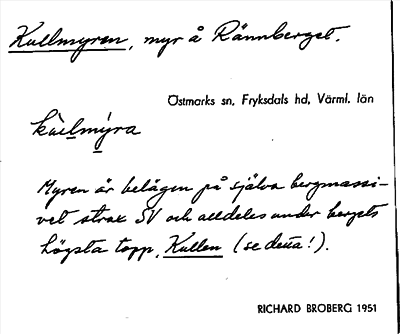 Kullmyren, myr å Rännberget.
Östmarks sn, Fryksdals hd, Värml. län
Myren är belägen på själva bergmassi-
vet strax SV och alldeles under bergets
högsta topp, Kullen (se detta!).
RICHARD BROBERG 1951